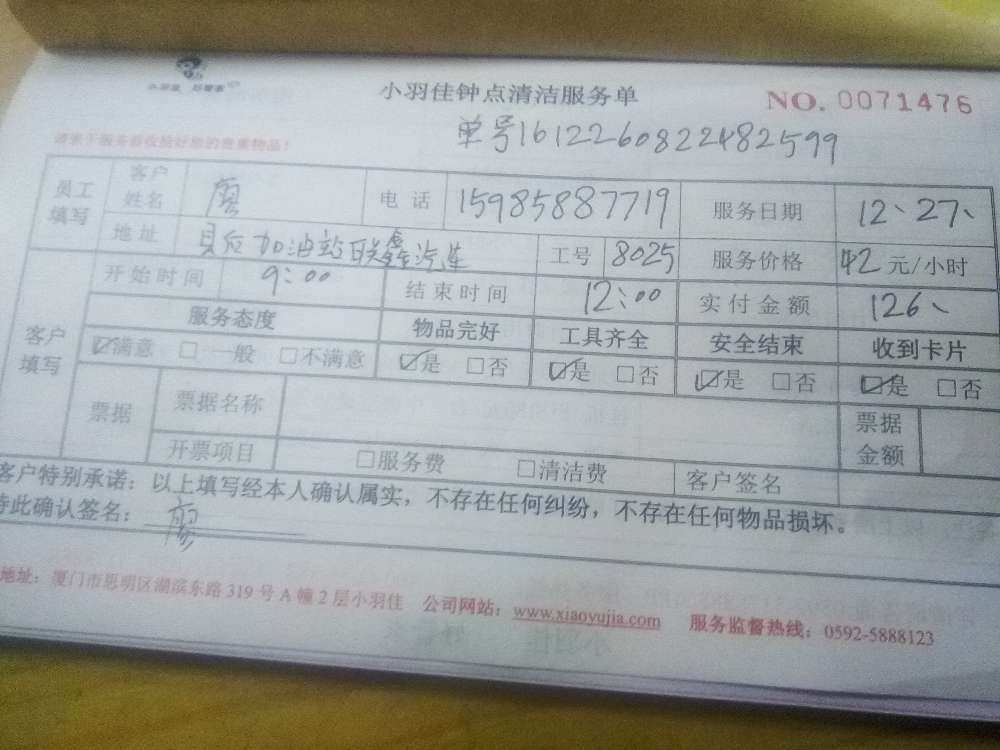 小羽佳 好管家
小羽佳钟点清洁服务单
NO. 0071476
单号161226082248２599
请于服务前收拾好您的贵重物品！
员工填写 客户姓名 廖 电话 15985887719 服务日期 12、27、
地址 贝后加油站联鑫汽车 工号 8025 服务价格 42 元/小时
客户填写 开始时间 9:00 结束时间 12:00 实付金额 126、
服务态度 物品完好 工具齐全 安全结束 收到卡片
☑满意 □一般 □不满意 ☑是 □否 ☑是 □否 ☑是 □否 ☑是 □否
票据 票据名称 票据金额
开票项目 □服务费 □清洁费 客户签名
客户特别承诺：以上填写经本人确认属实，不存在任何纠纷，不存在任何物品损坏。
特此确认签名：廖
地址：厦门市思明区湖滨东路319号A幢2层小羽佳 公司网站：www.xiaoyujia.com 服务监督热线：0592-5888123